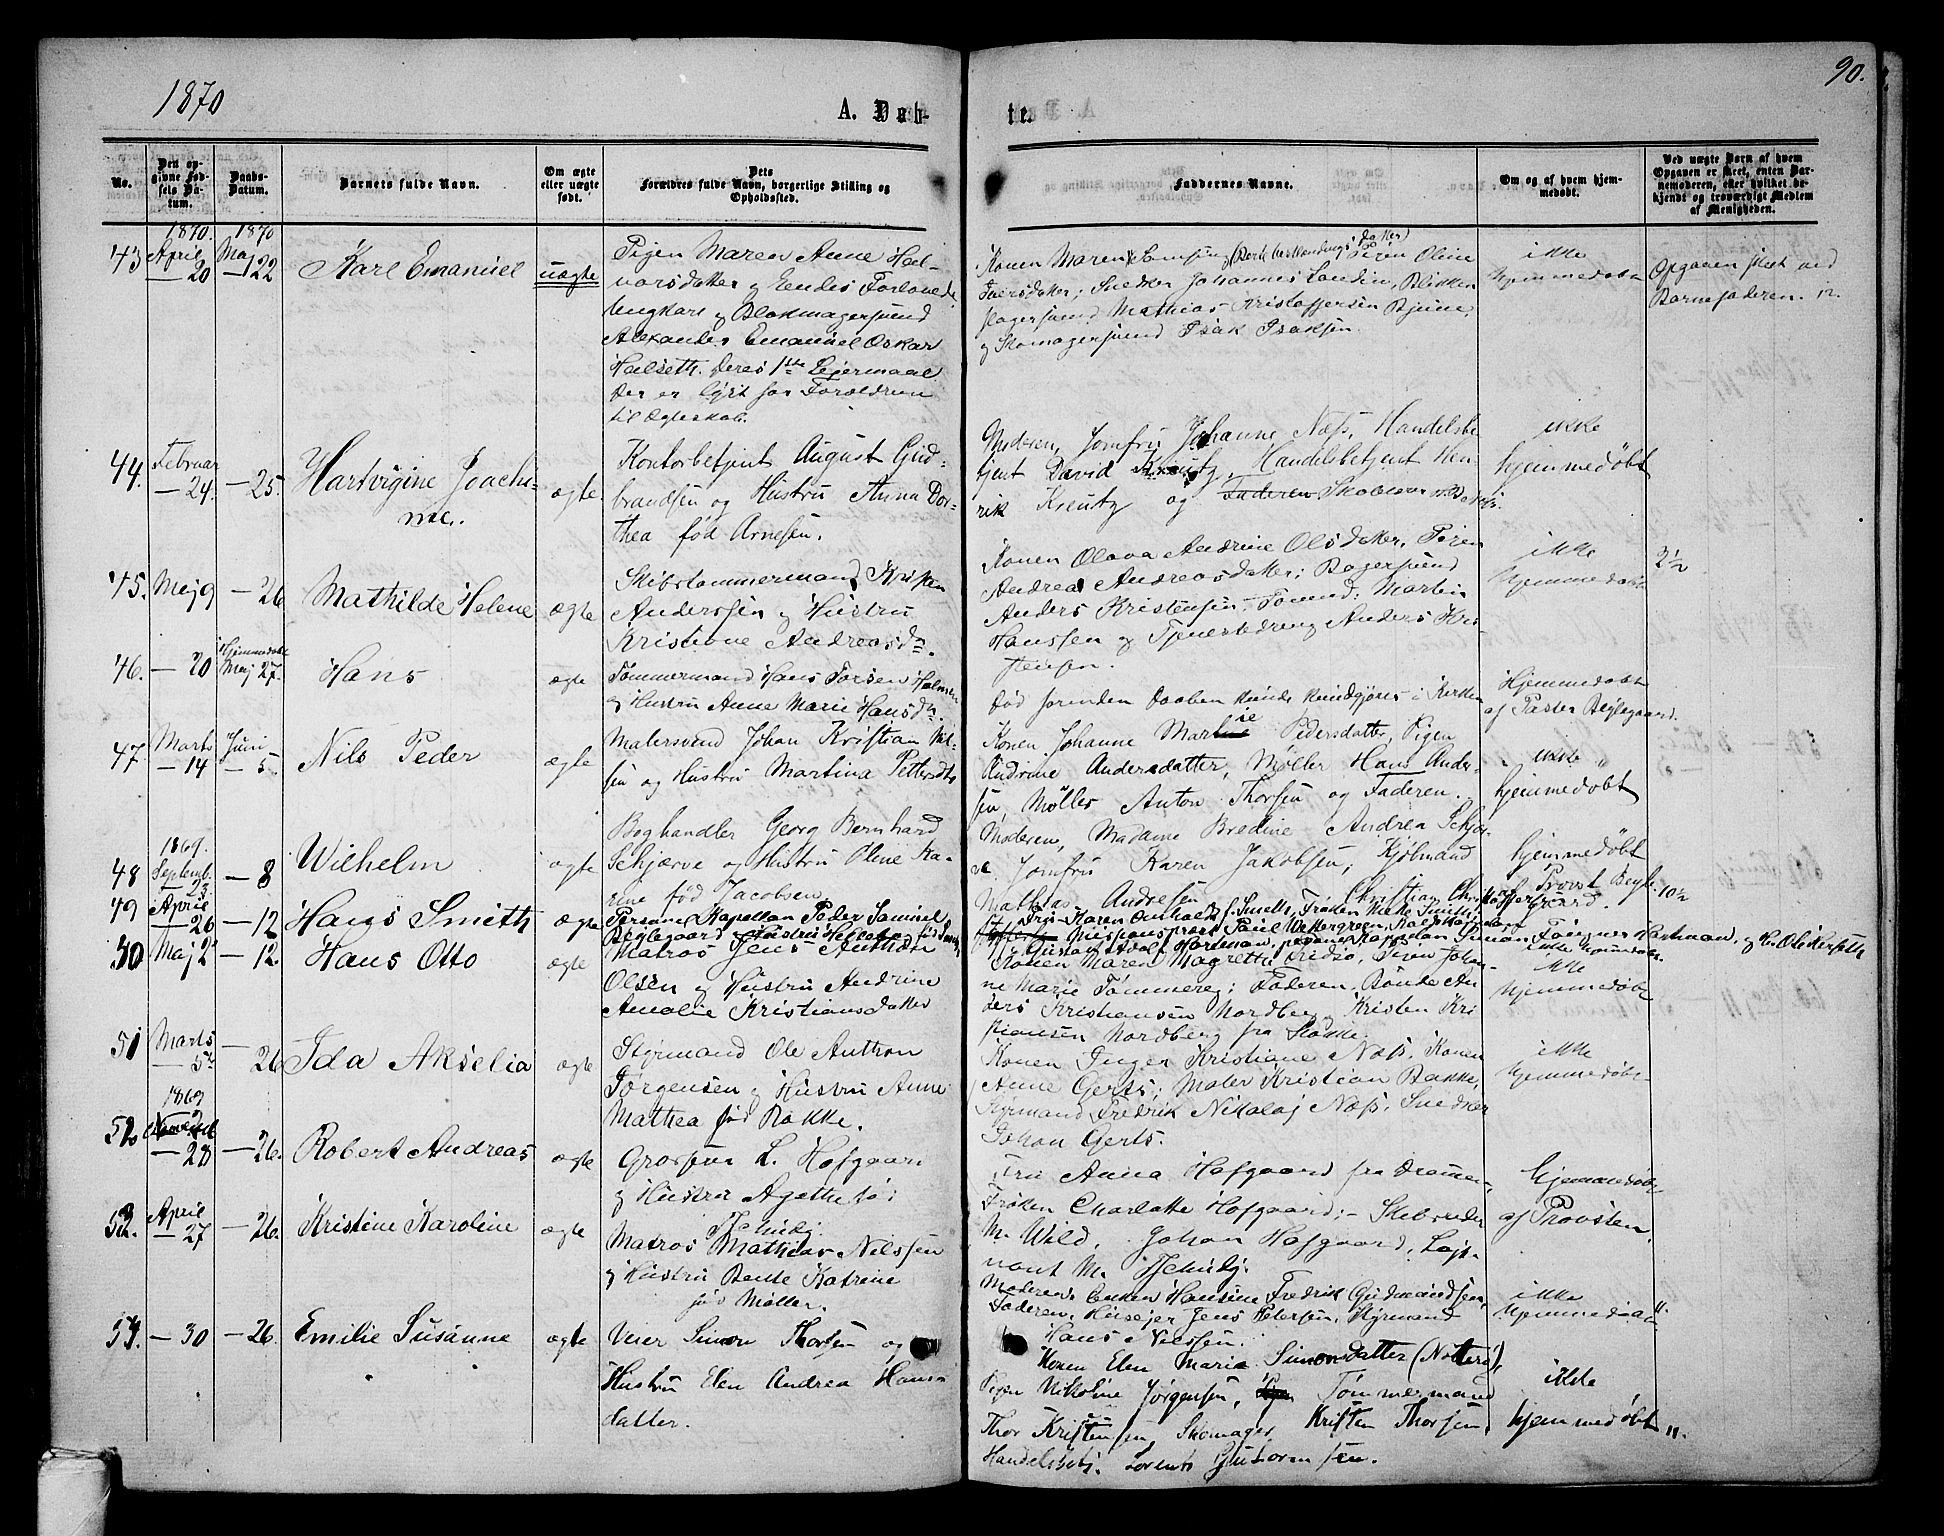 1870
A. Døb-
te.
90.
No.
Den op-
givne Fød-
sels Da-
tum.
Daabs-
Datum.
Barnets fulde Navn.
Om ægte
eller uægte
født.
Dets
Forældres fulde Navn, borgerlige Stilling og
Opholdssted.
Faddernes Navne.
Om og af hvem hjem-
medøbt.
Ved uægte Barn af hvem
Opgaven er skeet, enten Bar-
nemoderen, eller hvilket be-
kjendt og troværdigt Medlem
af Menigheden.
1870. 1870
43 April 20 Maj 22 Karl Emanuel uægte
Pigen Maren Anne Hal-
vorsdatter og Hendes Forlovede
Ungkarl og Blokmagersvend
Alexander Emanuel Oskar
Halseth. Deres 1ste Lejermaal
Der er lyst for Forældrene
til Ægteskab.
Konen Maren Pigen Oline
Iversdatter; Snedker Johannes Sandin, Blikken
slagersvend Mathias Kristoffersen Bjune,
og Skomagersvend Isak Isaksen.
ikke
hjemmedøbt
Opgaven skeet ved
Barnefaderen.
44. Februar 24. — 25. Hartvigine Joachi-
ne. ægte
Kontorbetjent August Gud-
brandsen og Hustru Anna Dor-
thea fød Arnesen.
Moderen, Jomfru Johanne Næss, Handelsbe-
tjent David Kreutz, Handelsbetjent Hen-
rik Kreutz og Faderen
ikke
hjemmedøbt
45. Maj 9 — 26 Mathilde Helene ægte
Skibstømmermand Kristen
Anderssen og Hustru
Kristiane Andreasdr.
Konen Olava Andrine Olsdatter, Pigen
Andrea Andreasdatter; Bagersvend
Anders Kristensen, Tømmd. Martin
Hanssen og Tjenestedreng Anders Kri-
stensen.
ikke
hjemmedøbt
2½
46. — 20 Hjemmedøbt Maj 27. Hans ægte
Tømmermand Hans Torsen Holmen
og Hustru Anne Marie Hansdr.
Død forinden Daaben kunde kundgjøres i Kirken
Hjemmedøbt
af Pastor Beglegaard.
47. Marts 14 Juni 5. Nils Peder ægte
Malersvend Johan Kristian Nil-
sen og Hustru Martina Pettersdtr
Konen Johanne Marie Pedersdatter, Pigen
Andrine Andersdatter, Møller Hans Ander-
sen, Møller Anton Thorsen og Faderen.
ikke
hjemmedøbt
1869.
48 Septemb. 23. — 8 Wilhelm ægte
Boghandler Georg Bernhard
Schjærve og Hustru Oline Ka-
rine fød Jacobsen
Moderen, Madame Bredine Andrea Schjær-
ve, Jomfru Karen Jakobsen; Kjøbmand
Mathias Andresen Christian Christoffersen
hjemmedøbt
Provst Begle-
gaard
10½
49 April 26 — 12 Hans Smith ægte
Personel Kapellan Peder Samuel
Beglegaard
Fru Karen Omholdt f. Smith, Frøken Mette Smith
Missionsprest Paul Wettergreen,
Gustav Adolf Hartman, personel Kapellan
50 Maj 2 — 12. Hans Otto ægte
Matros Jens Anthon
Olsen og Hustru Andrine
Amalie Kristiansdatter
Konen Maren Magrethe Fredsø, Pigen Johan-
ne Marie Tømmereg; Faderen, Bonde An-
ders Kristiansen Nordberg, Kristen Kri-
stiansen Nordberg fra Stokke.
ikke
hjemmedøbt
51 Marts 5te — 26 Ida Akselia ægte
Styrmand Ole Anthon
Jørgensen og Hustru Anne
Mathea fød Bakke.
Konen Inger Kristiane Næss, Konen
Anne Gerts; Maler Kristian Bakke,
Styrmand Fredrik Nikolaj Næss, Snedker
Johan Gerts.
ikke
hjemmedøbt
1869
52 28 — 26. Robert Andreas ægte
Grosserer L. Hofgaard
og Hustru Agathe fø:
Schuby.
Fru Anna Hofgaard fra Dramen,
Frøken Charlotte Hofgaard; Skibsreder
M. Wild, Johan Hofgaard, Løjt-
nant M.
hjemmedøbt
af Provsten
53. April 27 — 26. Kristine Karoline ægte
Matros Mathias Nilssen
og Hustru Bente Katrine
fød Møller.
Moderen, Enken Hansine Fredrik Gudmundsen,
Faderen, Husejer Jens Petersen, Styrmand
Hans Nielssen.
ikke
54. — 30 — 26. Emilie Susanne ægte
Vever Simon Thorsen og
Hustru Elen Andrea Hans-
datter.
Konen Elen Marie Simonsdatter (Nøtterø),
Pigen Nikoline Jørgensen, Tømmermand
Thor Kristensen, Skomager Kristen Thorsen,
Handelsbetj. Lorents Guttormsen.
ikke
hjemmedøbt